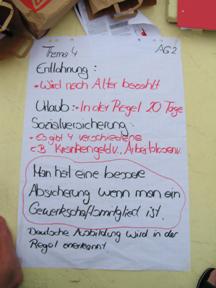 Thema 4 AG 2
Entlohnung:
• Wird nach Alter bezahlt
Urlaub: • In der Regel 20 Tage
Sozialversicherung:
• Es gibt 4 verschiedene
z.B. Krankengeldv., Arbeitslosenv.
Man hat eine bessere
Absicherung wenn man ein
Gewerkschaftsmitglied ist.
Deutsche Ausbildung wird in der
Regel anerkannt